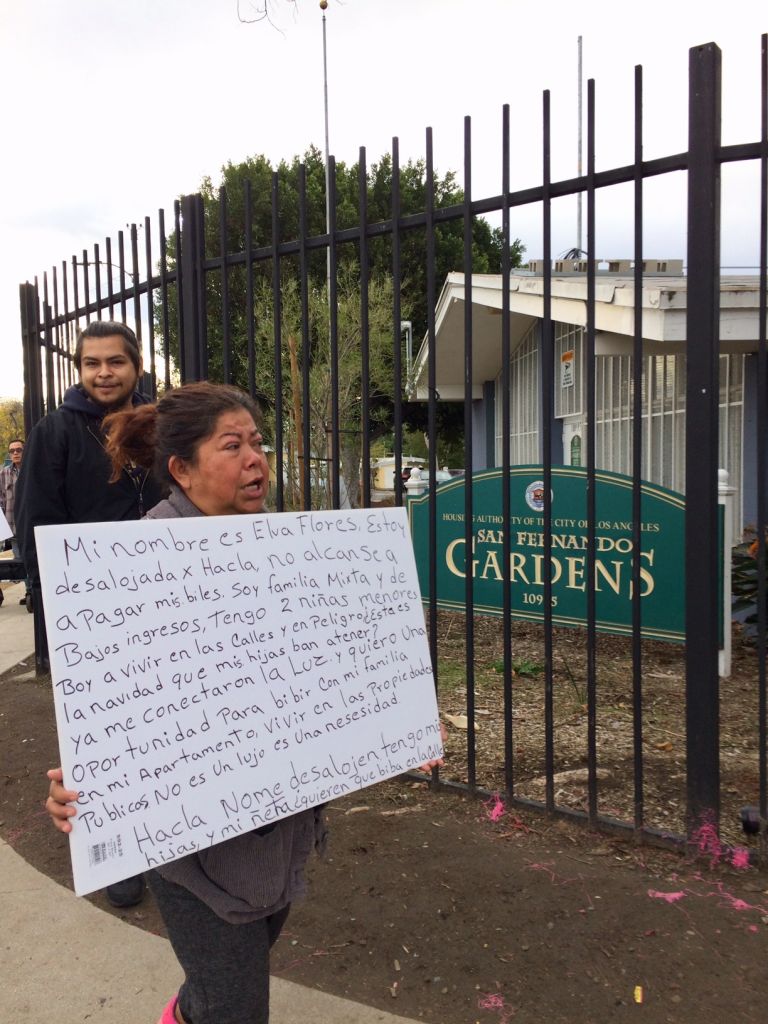 Mi nombre es Elva Flores, Estoy
desalojada x Hacla, no alcanse a
a Pagar mis biles. Soy familia Mixta y de
Bajos ingresos, Tengo 2 niñas menores
Boy a vivir en las Calles y en Peligro ¿Esta es
la navidad que mis hijas ban atener?
ya me conectaron la Luz. y quiero Una
oportunidad Para bibir Con mi familia
en mi Apartamento, Vivir en las Propiedades
Publicas No es Un lujo es Una nesesidad
Hacla Nome desalojen tengo mi
hijas, y mi neta ¿quieren que biba en la Calle
HOUSING AUTHORITY OF THE CITY OF LOS ANGELES
SAN FERNANDO
GARDENS